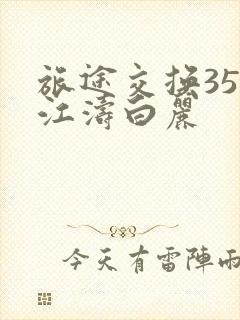 旅途交换35
江濤白麗
今天有雷陣雨